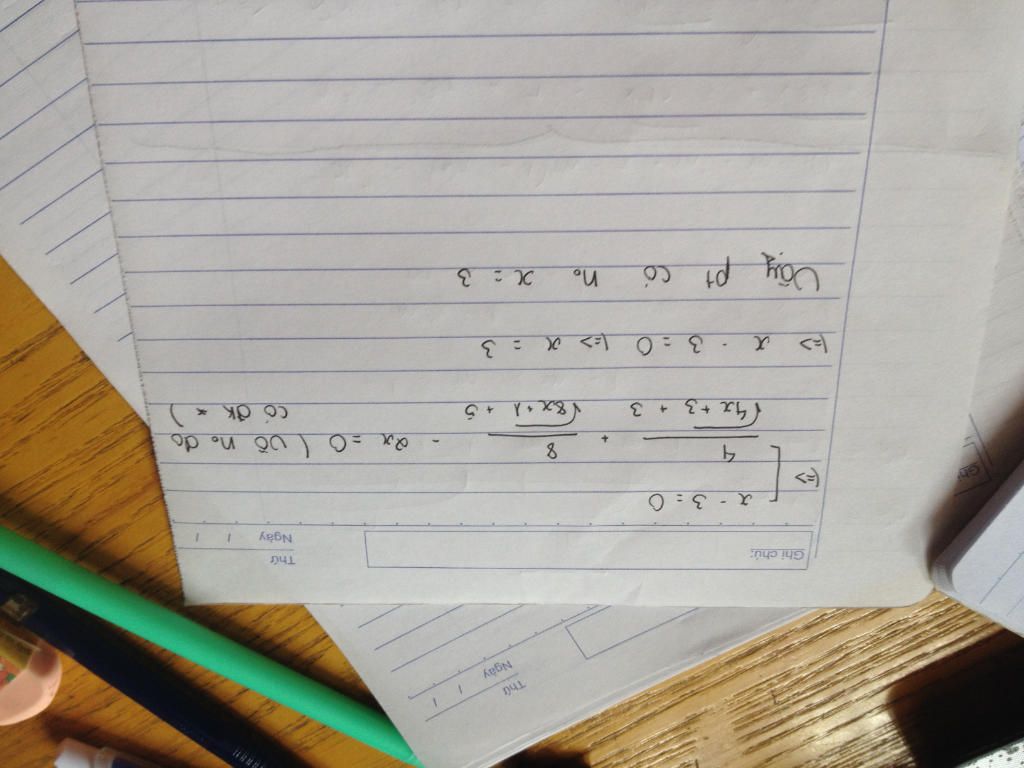 Ghi chú:
Thứ
Ngày / /
x - 3 = 0
(=> [ 4/(√4x+3 + 3) + 8/(√8x+1 + 5) - 2x = 0 ( vô no do
có đk * )
(=> x - 3 = 0 (=> x = 3
Vậy pt có no x = 3
Thứ
Ngày / /